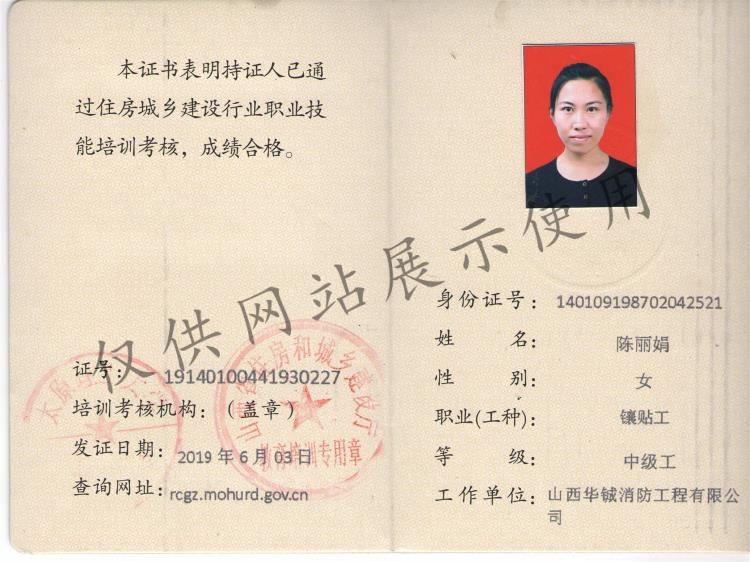 本证书表明持证人已通
过住房城乡建设行业职业技
能培训考核，成绩合格。
仅供网站展示使用
证号：19140100441930227
培训考核机构：（盖章）
发证日期：2019 年 6 月 03 日
查询网址：rcgz.mohurd.gov.cn
山西省住房和城乡建设厅
教育培训专用章
身份证号：140109198702042521
姓名：陈丽娟
性别：女
职业(工种)：镶贴工
等级：中级工
工作单位：山西华铖消防工程有限公
司